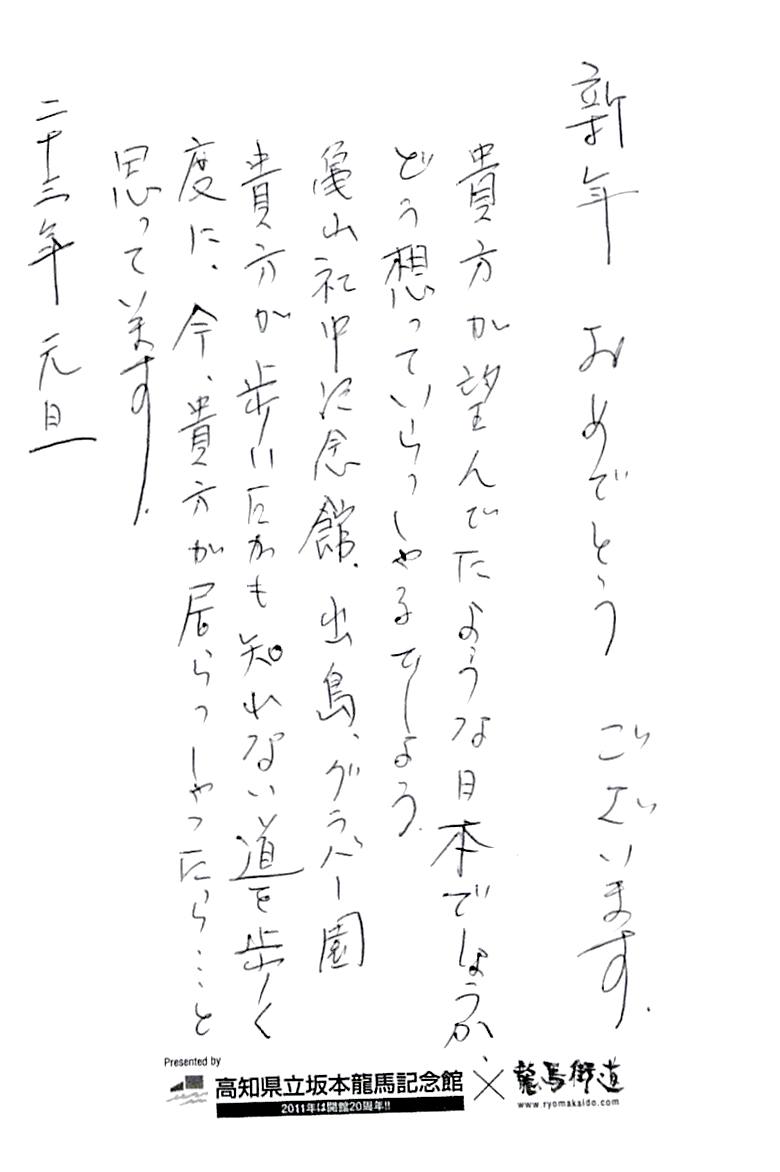 新年 おめでとう ございます.
貴方が望んでたような日本でしょうか、
どう想っていらっしゃるでしょう.
亀山社中記念館、出島、グラバー園
貴方が歩いたかも知れない道を歩く
度に、今、貴方が居らっしゃったら…と
思っています.
二十三年 元旦
Presented by
高知県立坂本龍馬記念館 × 龍馬街道
2011年は開館20周年!!
www.ryomakaido.com